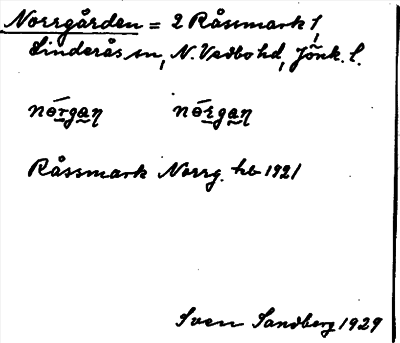 Norrgården = 2 Råssmark 1,
Linderås sn, N. Vedbo hd, Jönk. l.
nórgan nórgan
Råssmark Norrg. hb 1921
Sven Sandberg 1929